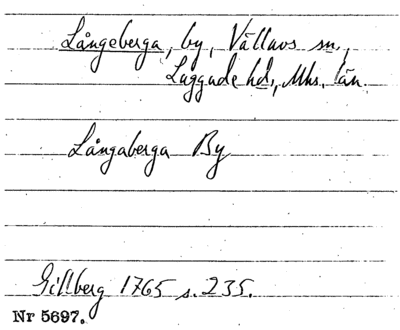 Långeberga, by, Vällavs sn.,
Laggade hd., Mhs. län.
Långaberga By
Gillberg 1765 s. 235.
Nr 5697.